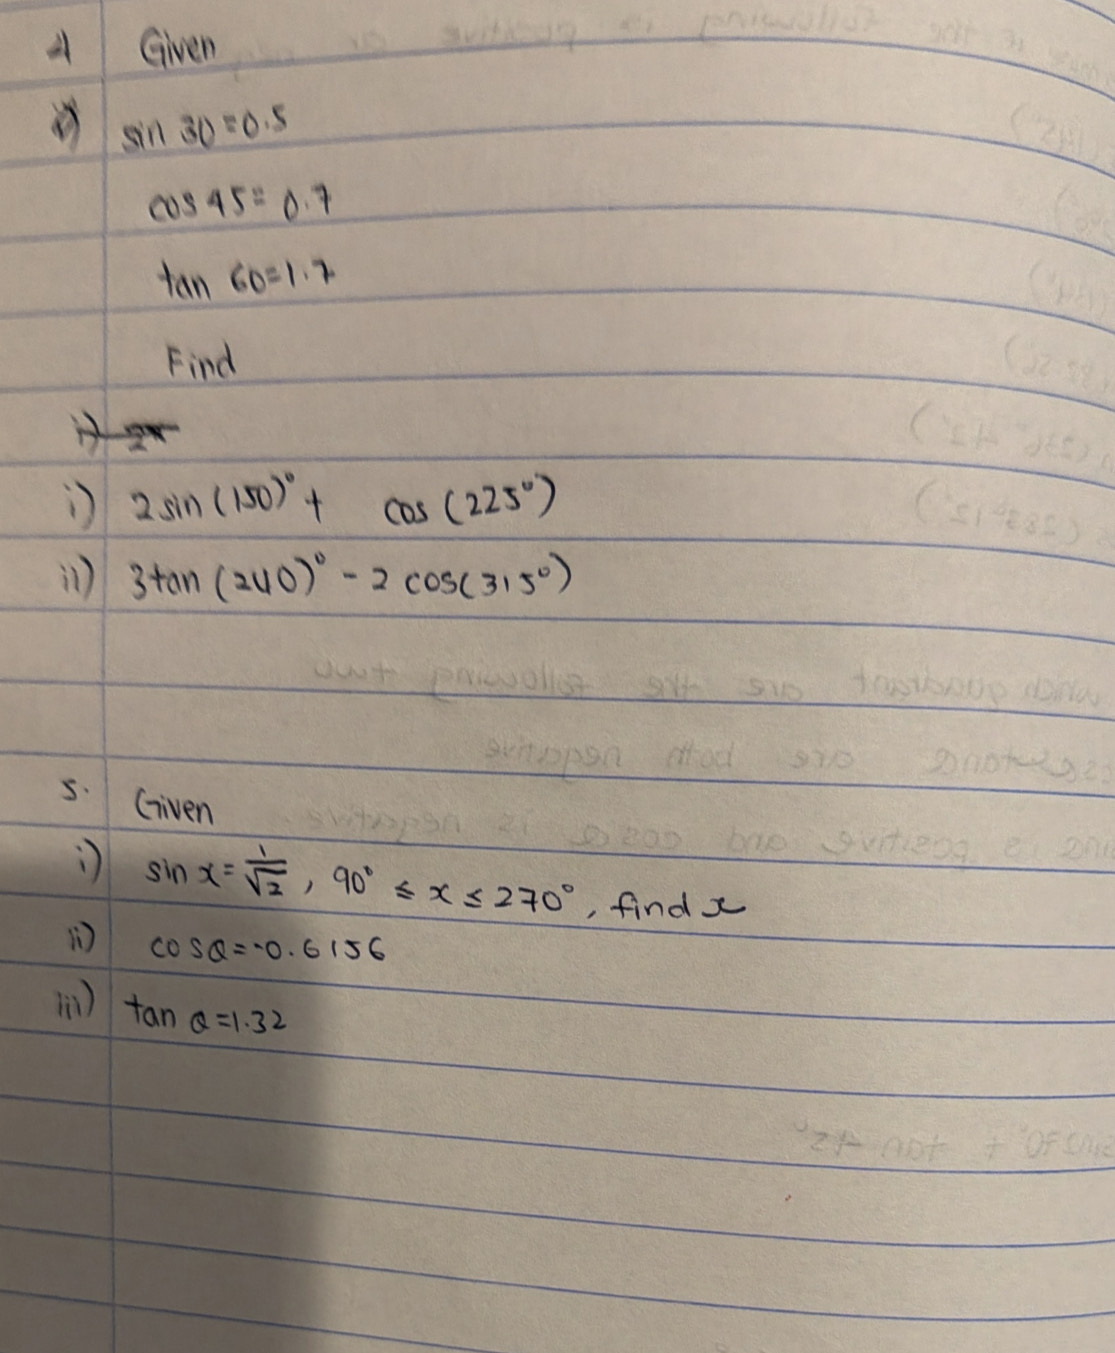 4 Given
sin 30 = 0.5
cos 45 = 0.7
tan 60 = 1.7
Find
i) 2 sin (150)° + cos (225°)
ii) 3 tan (240)° - 2 cos (315°)
5. Given
i) sin x = 1/√2, 90° ≤ x ≤ 270°, find x
ii) cos Q = -0.6156
iii) tan Q = 1.32